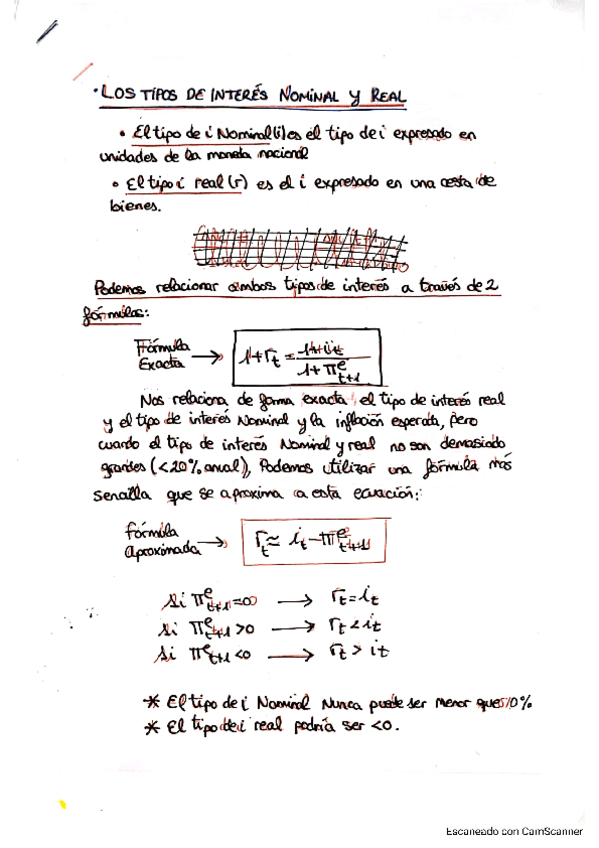 · LOS TIPOS DE INTERÉS NOMINAL Y REAL
• El tipo de i Nominal (i) es el tipo de i expresado en
unidades de la moneda nacional
• El tipo i real (r) es el i expresado en una cesta de
bienes.
Podemos relacionar ambos tipos de interés a través de 2
fórmulas:
Fórmula Exacta → 1+r_t = (1+i_t)/(1+π^e_{t+1})
Nos relaciona de forma exacta, el tipo de interés real
y el tipo de interés Nominal y la inflación esperada, pero
cuando el tipo de interés Nominal y real no son demasiado
grandes (<20% anual), Podemos utilizar una fórmula más
sencilla que se aproxima a esta ecuación:
fórmula aproximada → r_t ≈ i_t - π^e_{t+1}
Si π^e_{t+1} = 0 → r_t = i_t
Si π^e_{t+1} > 0 → r_t < i_t
Si π^e_{t+1} < 0 → r_t > i_t
* El tipo de i Nominal Nunca puede ser menor que 0%
* El tipo de i real podría ser <0.
Escaneado con CamScanner